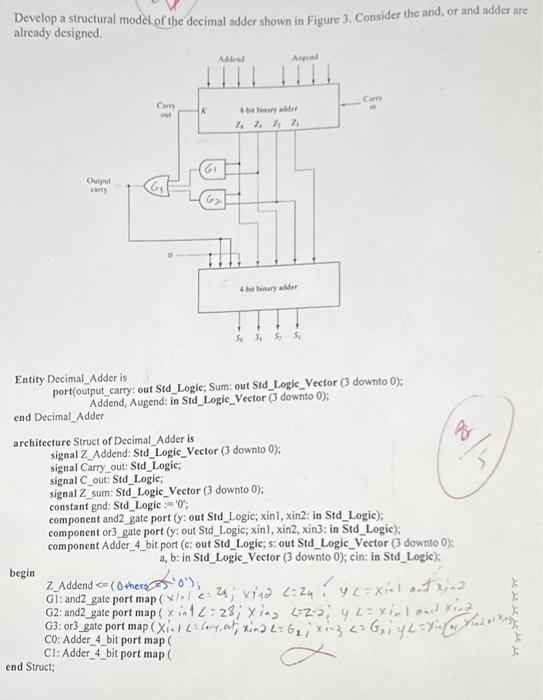 Develop a structural model of the decimal adder shown in Figure 3. Consider the and, or and adder are
already designed.
Addend
Augend
Carry
out
K
4-bit binary adder
Carry
in
Z₈ Z₄ Z₂ Z₁
G1
Output
carry
G3
G2
0
4-bit binary adder
S₈ S₄ S₂ S₁
Entity Decimal_Adder is
port(output_carry: out Std_Logic; Sum: out Std_Logic_Vector (3 downto 0);
Addend, Augend: in Std_Logic_Vector (3 downto 0);
end Decimal_Adder
architecture Struct of Decimal_Adder is
signal Z_Addend: Std_Logic_Vector (3 downto 0);
signal Carry_out: Std_Logic;
signal C_out: Std_Logic;
signal Z_sum: Std_Logic_Vector (3 downto 0);
constant gnd: Std_Logic := '0';
component and2_gate port (y: out Std_Logic; xin1, xin2: in Std_Logic);
component or3_gate port (y: out Std_Logic; xin1, xin2, xin3: in Std_Logic);
component Adder_4_bit port (c: out Std_Logic; s: out Std_Logic_Vector (3 downto 0);
a, b: in Std_Logic_Vector (3 downto 0); cin: in Std_Logic);
begin
Z_Addend <= (Others => '0');
G1: and2_gate port map ( xin1 <= Z8; xin2 <= Z4; y <= xin1 and xin2 );
G2: and2_gate port map ( xin1 <= Z8; xin2 <= Z2; y <= xin1 and xin2 );
G3: or3_gate port map ( xin1 <= xin2 <= xin3 <= y <= );
C0: Adder_4_bit port map ( );
C1: Adder_4_bit port map ( );
end Struct;
5